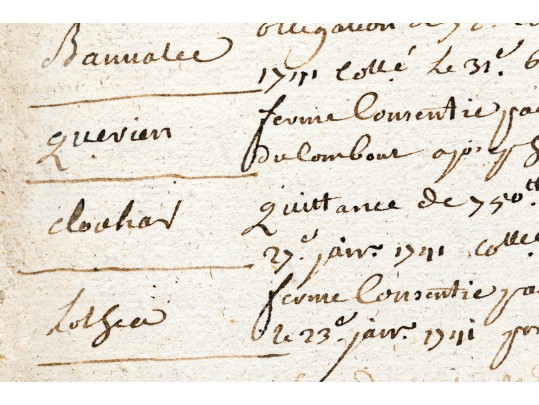 Bannalec
obligation de
1741 Collé Le 31.e
querien
ferme Consentie par
du Combout
Clohar
Quittance de 750tt
27.e janv.r 1741 Collé
Lothea
ferme Consentie par
le 23.e janv.r 1741